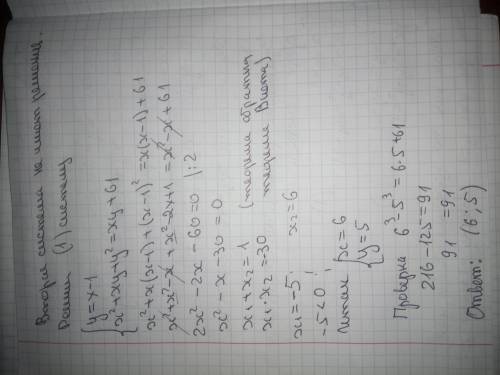 Вторая система не имеет решения.
Решим (1) систему
{y = x-1
{x²+xy+y² = xy+61
x²+x(x-1)+(x-1)² = x(x-1)+61
x²+x²-x+x²-2x+1 = x²-x+61
2x²-2x-60=0 |:2
x²-x-30=0
x₁+x₂=1 (теорема обратная
x₁·x₂=30 теореме Виета)
x₁=-5; x₂=6
-5<0!
Итак {x=6
{y=5
Проверка 6³-5³=6·5+61
216-125=91
91=91
Ответ: (6;5)